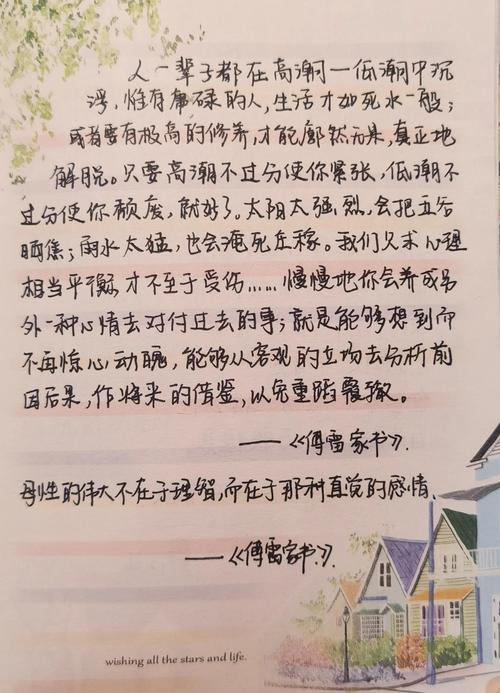 人一辈子都在高潮一低潮中沉
浮，惟有庸碌的人，生活才如死水一般；
或者要有极高的修养，才能廓然无累，真正地
解脱。只要高潮不过分使你紧张，低潮不
过分使你颓废，就好了。太阳太强烈，会把五谷
晒焦；雨水太猛，也会淹死庄稼。我们只求心理
相当平衡，才不至于受伤……慢慢地你会养成另
外一种心情去对付过去的事；就是能够想到而
不再惊心动魄，能够从客观的立场去分析前
因后果，作将来的借鉴，以免重蹈覆辙。
——《傅雷家书》.
母性的伟大不在于理智，而在于那种直觉的感情.
——《傅雷家书》.
wishing all the stars and life.